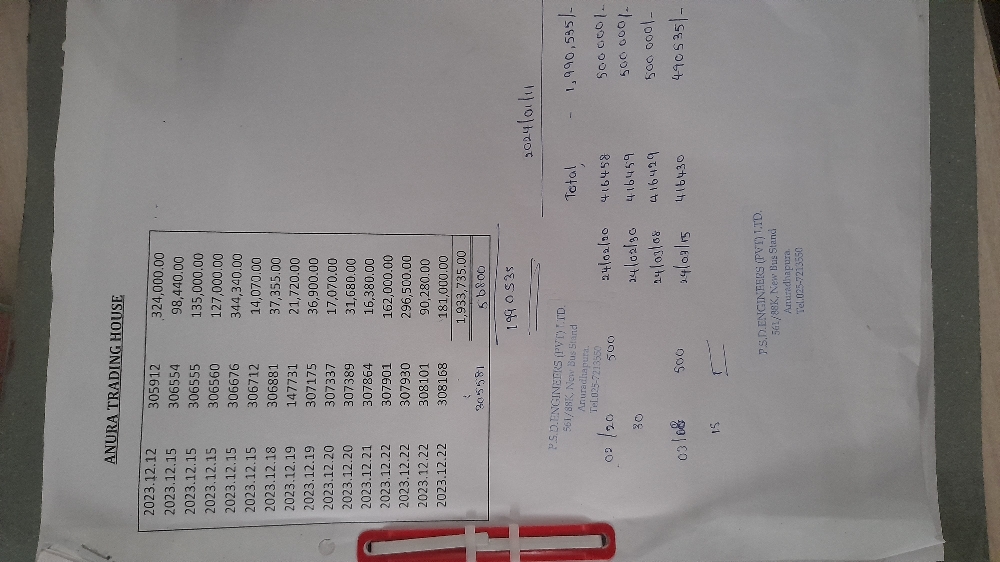 ANURA TRADING HOUSE
2023.12.12 305912 324,000.00
2023.12.15 306554 98,440.00
2023.12.15 306555 135,000.00
2023.12.15 306560 127,000.00
2023.12.15 306676 344,340.00
2023.12.15 306712 14,070.00
2023.12.18 306881 37,355.00
2023.12.19 147731 21,720.00
2023.12.19 307175 36,900.00
2023.12.20 307337 17,070.00
2023.12.20 307389 31,680.00
2023.12.21 307864 16,380.00
2023.12.22 307901 162,000.00
2023.12.22 307930 296,500.00
2023.12.22 308101 90,280.00
2023.12.22 308168 181,000.00
1,933,735.00
305581 56800
1990535
2024/01/11
P.S.D.ENGINEERS (PVT) LTD.
561/88K, New Bus Stand
Anuradhapura.
Tel.025-7213550
Total, - 1,990,535/-
02/20 500 24/02/20 416458 500 000/-
30 24/02/30 416459 500 000/-
24/03/08 416429 500 000/-
03/08 500 24/03/15 416430 490535/-
15
P.S.D.ENGINEERS (PVT) LTD.
561/88K, New Bus Stand
Anuradhapura.
Tel.025-7213550